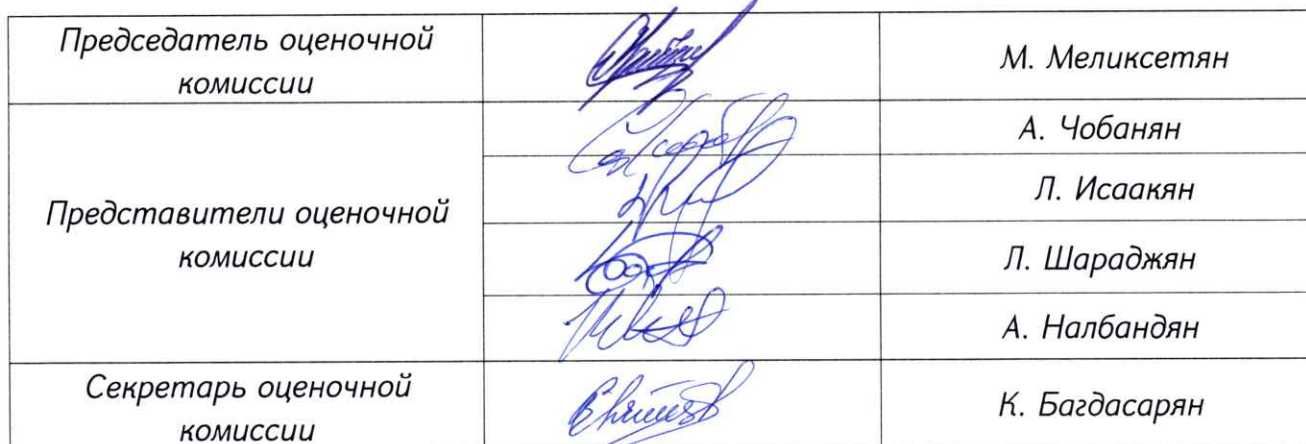 Председатель оценочной
комиссии
М. Меликсетян
Представители оценочной
комиссии
А. Чобанян
Л. Исаакян
Л. Шараджян
А. Налбандян
Секретарь оценочной
комиссии
К. Багдасарян